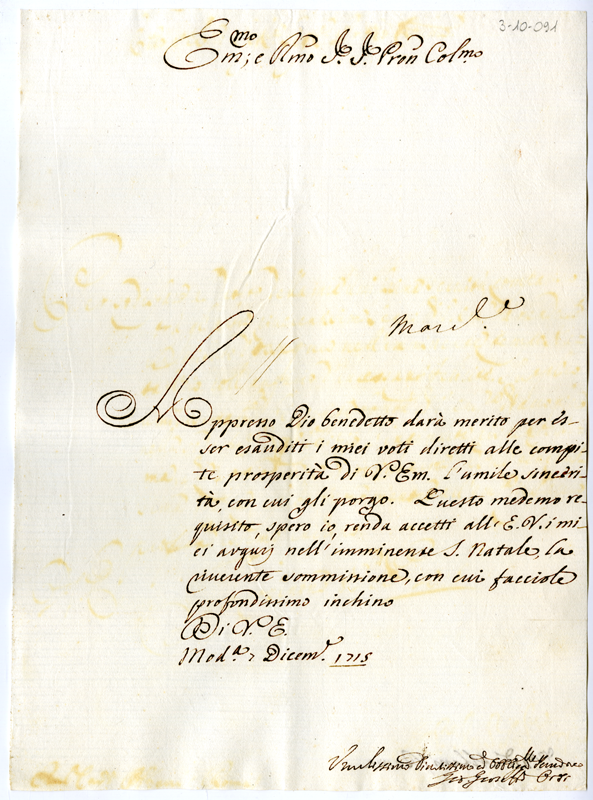 3-10-091
Em.mo
Em; e Rmo Sr. Sr. Pron Colmo
Appresso Dio benedetto darà merito per es-
ser esauditi i miei voti diretti alle compi-
te prosperità di V. Em. l'umile sincerità,
tà, con cui gli porgo. Questo medemo re-
quisito, spero io, renda accetti all'E. V. i mi-
ei augurj nell'imminente S. Natale, la
riverente sommissione, con cui facciole
profondissimo inchino
Di V. E.
Mod.a 7 Dicem. 1715
Umilissimo Divotissimo ed